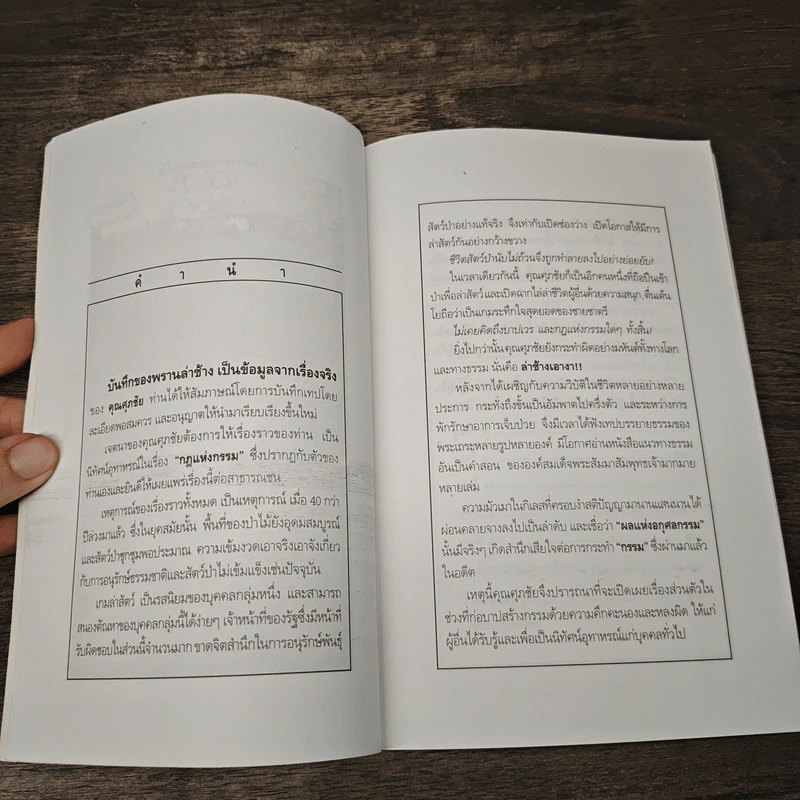 คำนำ
บันทึกของพรานล่าช้าง เป็นข้อมูลจากเรื่องจริง
ของ คุณศุภชัย ท่านได้ให้สัมภาษณ์โดยการบันทึกเทปโดย
ละเอียดพอสมควร และอนุญาตให้นำมาเรียบเรียงขึ้นใหม่
เจตนาของคุณศุภชัยต้องการให้เรื่องราวของท่าน เป็น
นิทัศน์อุทาหรณ์ในเรื่อง “กฎแห่งกรรม” ซึ่งปรากฏกับตัวของ
ท่านเองและยินดีให้เผยแพร่เรื่องนี้ต่อสาธารณชน
เหตุการณ์ของเรื่องราวทั้งหมด เป็นเหตุการณ์ เมื่อ 40 กว่า
ปีล่วงมาแล้ว ซึ่งในยุคสมัยนั้น พื้นที่ของป่าไม้ยังอุดมสมบูรณ์
และสัตว์ป่าชุกชุมพอประมาณ ความเข้มงวดเอาจริงเอาจังเกี่ยว
กับการอนุรักษ์ธรรมชาติและสัตว์ป่าไม่เข้มแข็งเช่นปัจจุบัน
เกมล่าสัตว์ เป็นรสนิยมของบุคคลกลุ่มหนึ่ง และสามารถ
สนองตัณหาของบุคคลกลุ่มนี้ได้ง่ายๆ เจ้าหน้าที่ของรัฐซึ่งมีหน้าที่
รับผิดชอบในส่วนนี้จำนวนมาก ขาดจิตสำนึกในการอนุรักษ์พันธุ์
สัตว์ป่าอย่างแท้จริง จึงเท่ากับเปิดช่องว่าง เปิดโอกาสให้มีการ
ล่าสัตว์กันอย่างกว้างขวาง
ชีวิตสัตว์ป่านับไม่ถ้วนจึงถูกทำลายลงไปอย่างย่อยยับ!
ในเวลาเดียวกันนี้ คุณศุภชัยก็เป็นอีกคนหนึ่งที่ถือปืนเข้า
ป่าเพื่อล่าสัตว์ และเปิดฉากไล่ล่าชีวิตผู้อื่นด้วยความสนุก,ตื่นเต้น
โดยถือว่าเป็นเกมระทึกใจสุดยอดของชายชาตรี
ไม่เคยคิดถึงบาปเวร และกฎแห่งกรรมใดๆ ทั้งสิ้น!
ยิ่งไปกว่านั้น คุณศุภชัยยังกระทำผิดอย่างมหันต์ทั้งทางโลก
และทางธรรม นั่นคือ ล่าช้างเอางา!!
หลังจากได้เผชิญกับความวิบัติในชีวิตหลายอย่างหลาย
ประการ กระทั่งถึงขั้นเป็นอัมพาตไปครึ่งตัว และระหว่างการ
พักรักษาอาการเจ็บป่วย จึงมีเวลาได้ฟังเทปบรรยายธรรมของ
พระเถระหลายรูปหลายองค์ มีโอกาสอ่านหนังสือแนวทางธรรม
อันเป็นคำสอน ขององค์สมเด็จพระสัมมาสัมพุทธเจ้ามากมาย
หลายเล่ม
ความมัวเมาในกิเลสที่ครอบงำสติปัญญามานานแสนนานได้
ผ่อนคลายจางลงไปเป็นลำดับ และเชื่อว่า “ผลแห่งอกุศลกรรม”
นั้นมีจริงๆ เกิดสำนึกเสียใจต่อการกระทำ “กรรม” ซึ่งผ่านมาแล้ว
ในอดีต
เหตุนี้คุณศุภชัยจึงปรารถนาที่จะเปิดเผยเรื่องส่วนตัวใน
ช่วงที่ก่อบาปสร้างกรรมด้วยความคึกคะนองและหลงผิด ให้แก่
ผู้อื่นได้รับรู้และเพื่อเป็นนิทัศน์อุทาหรณ์แก่บุคคลทั่วไป